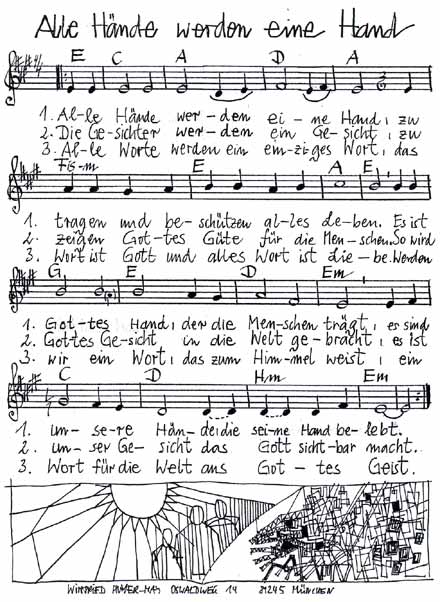 Alle Hände werden eine Hand
E C A D A
1. Al-le Hände wer-den ei-ne Hand, zu
2. Die Ge-sichter wer-den ein Ge-sicht, zu
3. Al-le Worte werden ein ein-ziges Wort, das
Fis-m E A E
1. tragen und be-schützen al-les Le-ben. Es ist
2. zeigen Got-tes Güte für die Men-schen. So wird
3. Wort ist Gott und alles Wort ist Lie-be. Werden
G E D Em
1. Got-tes Hand, der die Men-schen trägt, er sind
2. Gottes Ge-sicht in die Welt ge-bracht, es ist
3. wir ein Wort, das zum Him-mel weist, ein
C D Hm Em
1. un-se-re Hän-de, die sei-ne Hand be-lebt.
2. un-ser Ge-sicht das Gott sicht-bar macht.
3. Wort für die Welt aus Got-tes Geist.
WINFRIED OSWALDWEG 14 81245 MÜNCHEN